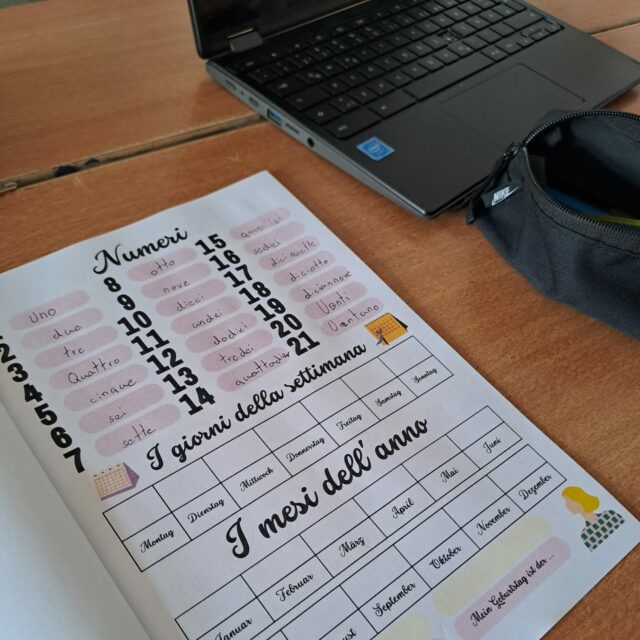 Numeri
Uno
2 duo
3 tre
4 Quattro
5 cinque
6 sei
7 sette
8 otto
9 nove
10 dieci
11 undei
12 dodici
13 tredei
14
15 quindici
16 sedici
17
18 diciotto
19 diciannove
20 Venti
21 Ventuno
I giorni della settimana
Montag Dienstag Mittwoch Donnerstag Freitag Samstag Sonntag
I mesi dell' anno
Januar Februar März April Mai Juni
September Oktober November Dezember
Mein Geburtstag ist der ...
intel
NIKE